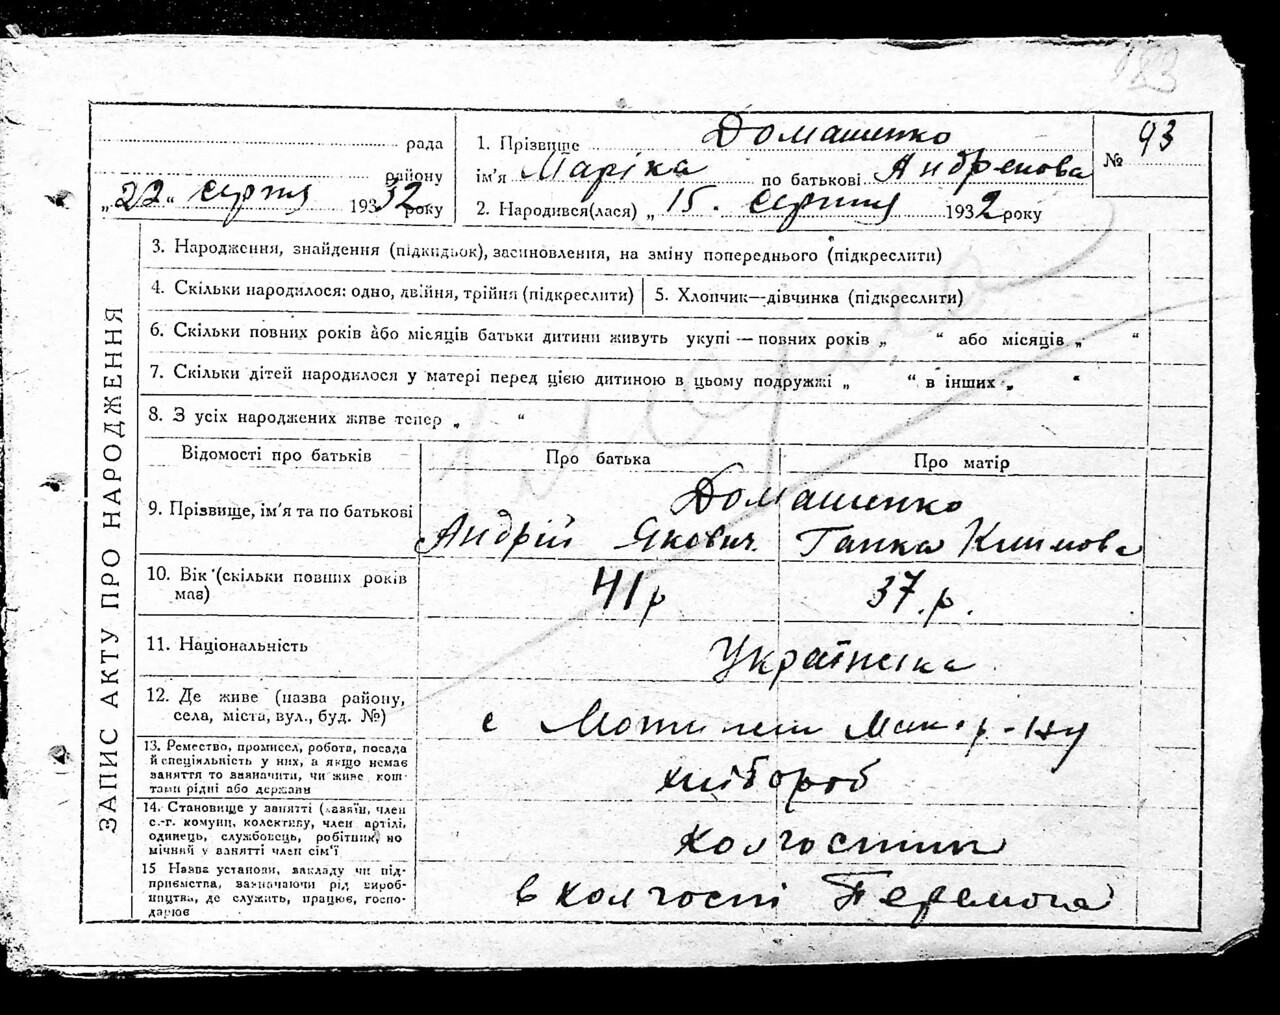 123
рада
району
„22“ серпня 1932 року
1. Прізвище Домашенко
ім'я Маріка по батькові Андреєова
2. Народився(лася) „15. серпня 1932 року
№ 93
ЗАПИС АКТУ ПРО НАРОДЖЕННЯ
3. Народження, знайдення (підкидьок), засиновлення, на зміну попереднього (підкреслити)
4. Скільки народилося: одно, двійня, трійня (підкреслити)
5. Хлопчик—дівчинка (підкреслити)
6. Скільки повних років або місяців батьки дитини живуть укупі — повних років „ “ або місяців „ “
7. Скільки дітей народилося у матері перед цією дитиною в цьому подружжі „ “ в інших „ “
8. З усіх народжених живе тепер „ “
Відомості про батьків
Про батька
Про матір
9. Прізвище, ім'я та по батькові
Домашенко
Андрій Якович. Ганка Климова
10. Вік (скільки повних років
має)
41 р
37. р.
11. Національність
Українська
12. Де живе (назва району,
села, міста, вул., буд. №)
с Мотижин Мак. р-ну
13. Ремество, промисел, робота, посада
й спеціяльність у них, а якщо немає
заняття то зазначити, чи живе кош-
тами рідні або держави
хлібороб
14. Становище у занятті (хазяїн, член
с.-г. комуни, колективу, член артілі,
одинець, службовець, робітник, по
мічний у занятті член сім'ї
колгоспник
15 Назва установи, закладу чи під-
приємства, зазначаючи рід вироб-
ництва, де служить, працює, госпо-
дарює
в колгоспі Перемога